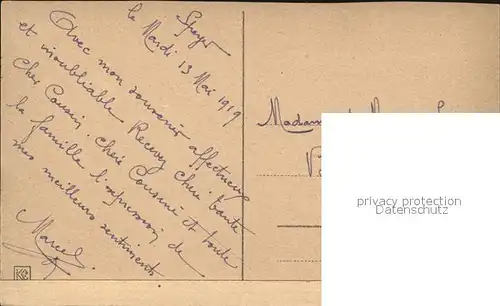 Speyer
le Mardi 13 Mai 1919
Avec mon souvenir affectueux
et inoubliable Recevez chère tante
cher Cousin, chère Cousine et toute
la famille l'expression de
mes meilleurs sentiments
Marcel
Madame
privacy protection
Datenschutz